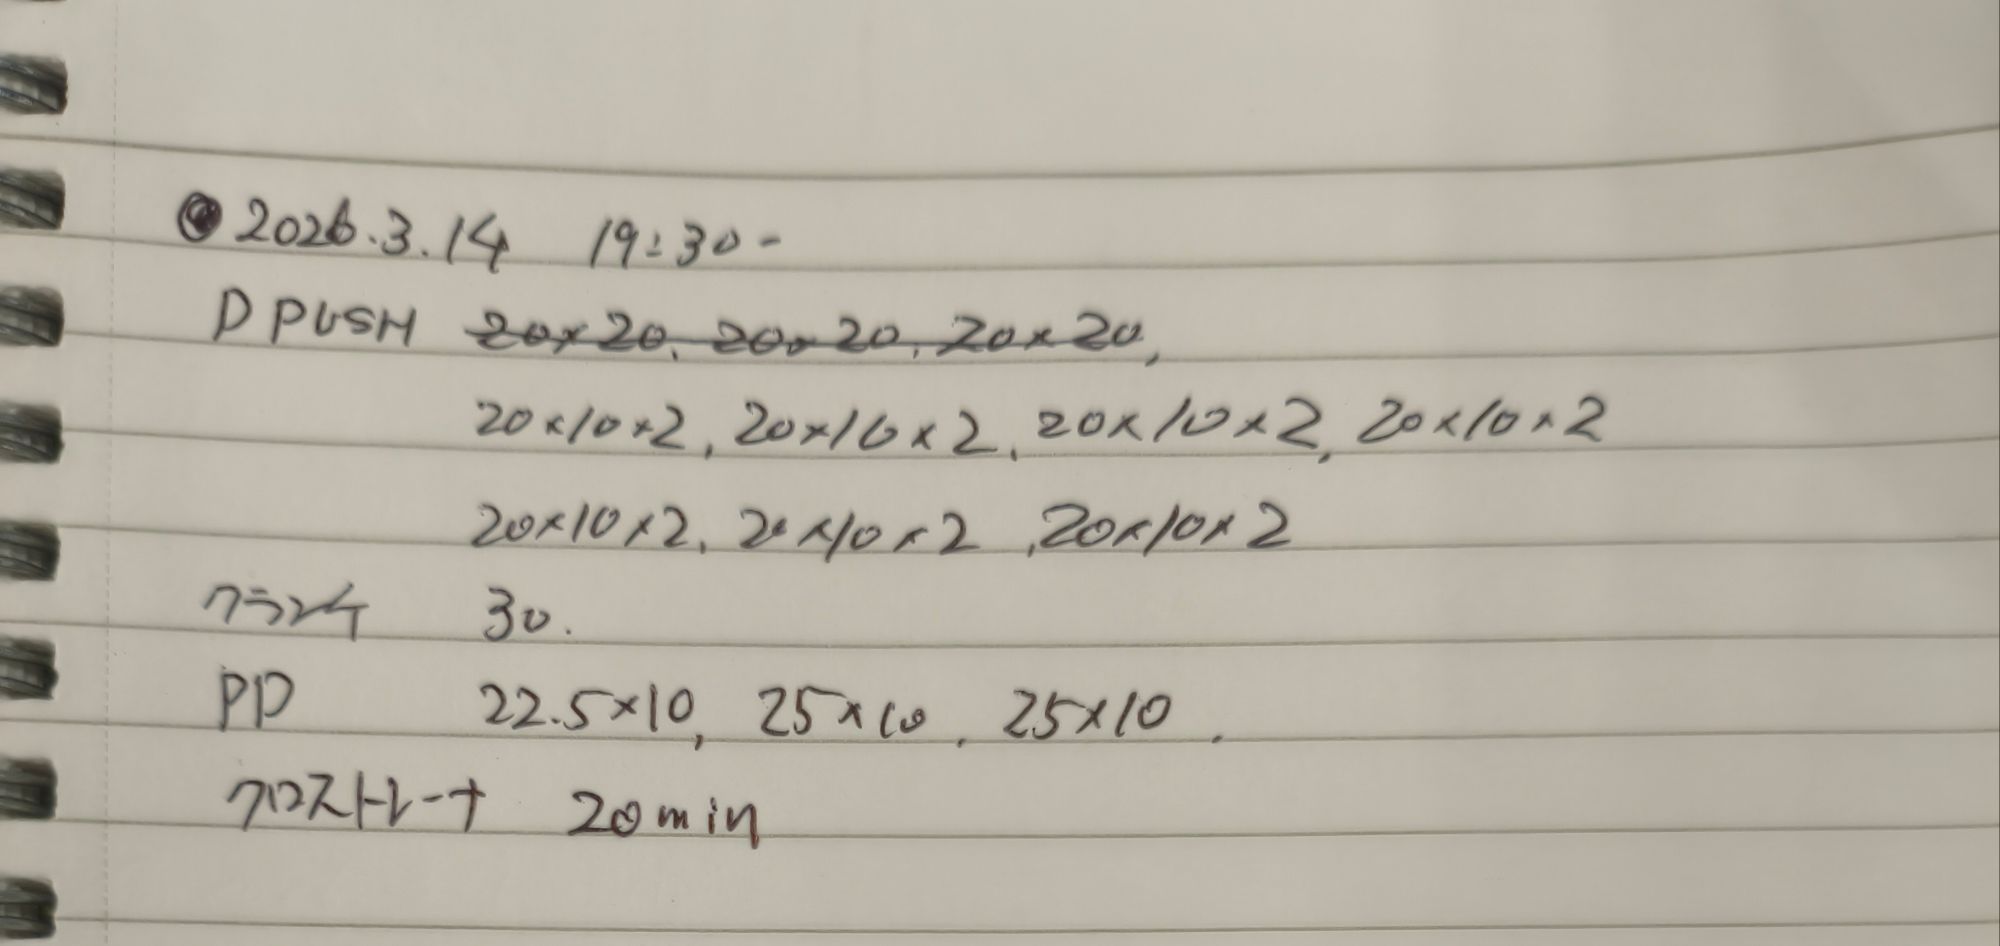 ● 2026.3.14 19:30-
D PUSH 20×20, 20×20, 20×20,
20×10×2, 20×10×2, 20×10×2, 20×10×2
20×10×2, 20×10×2, 20×10×2
クランチ 30.
PD 22.5×10, 25×10, 25×10,
クロストレーナ 20min